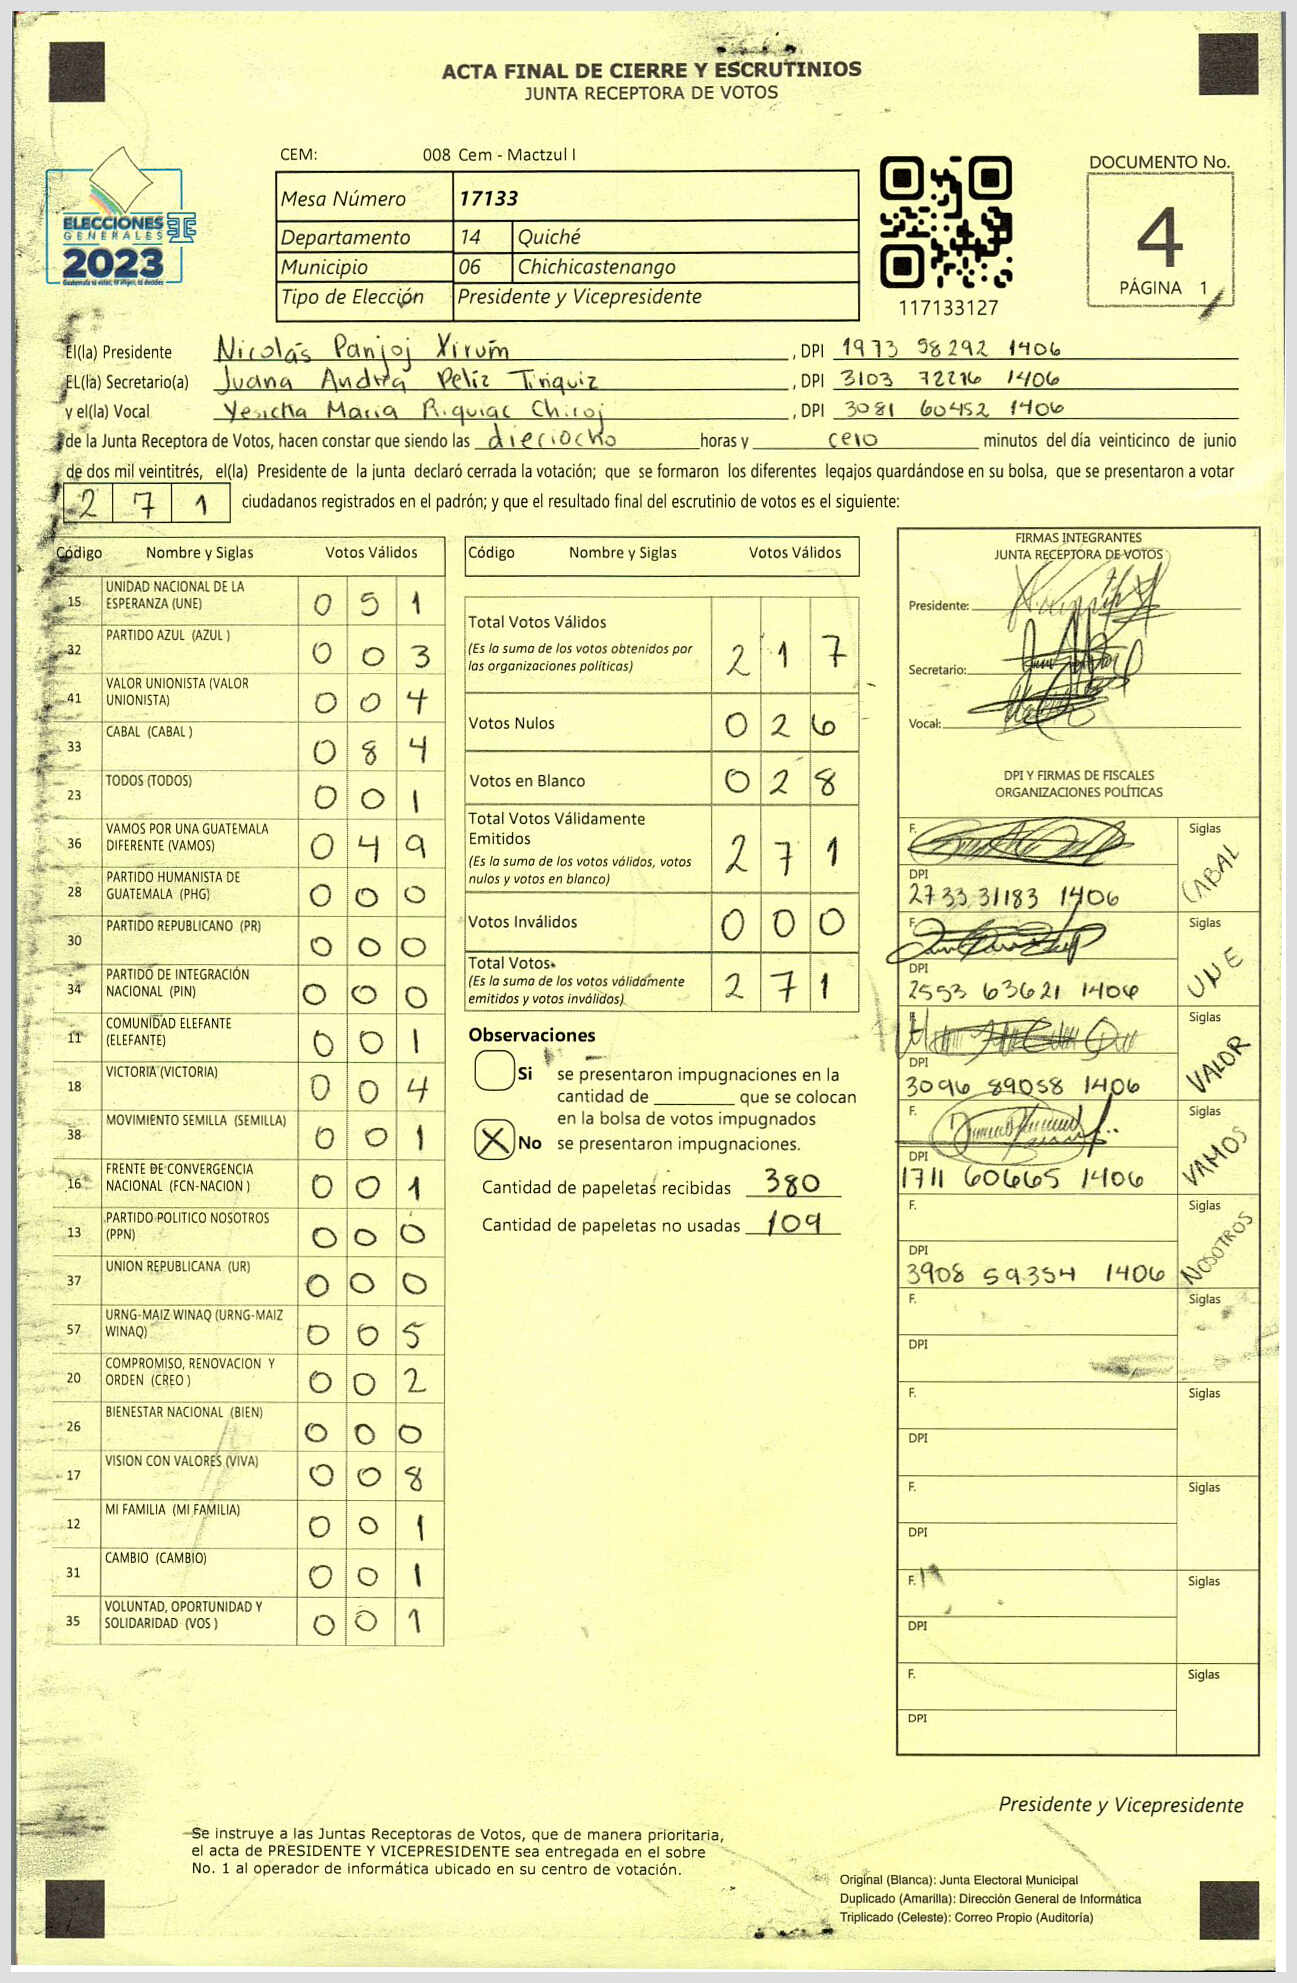 ACTA FINAL DE CIERRE Y ESCRUTINIOS
JUNTA RECEPTORA DE VOTOS
CEM: 008 Cem - Mactzul I
Mesa Número 17133
Departamento 14 Quiché
Municipio 06 Chichicastenango
Tipo de Elección Presidente y Vicepresidente
ELECCIONES
GENERALES
2023
Guatemala tú votas, tú eliges, tú decides
117133127
DOCUMENTO No.
4
PÁGINA 1
El(la) Presidente Nicolás Panjoj Xirum, DPI 1973 58292 1406
EL(la) Secretario(a) Juana Andrea Peliz Tiniquiz, DPI 3103 72276 1406
y el(la) Vocal Yesicka Maria Riquiac Chiroj, DPI 3081 60452 1406
de la Junta Receptora de Votos, hacen constar que siendo las dieciocho horas y cero minutos del día veinticinco de junio
de dos mil veintitrés, el(la) Presidente de la junta declaró cerrada la votación; que se formaron los diferentes legajos quardándose en su bolsa, que se presentaron a votar
2 7 1 ciudadanos registrados en el padrón; y que el resultado final del escrutinio de votos es el siguiente:
Código Nombre y Siglas Votos Válidos
15 UNIDAD NACIONAL DE LA ESPERANZA (UNE) 0 5 1
32 PARTIDO AZUL (AZUL ) 0 0 3
41 VALOR UNIONISTA (VALOR UNIONISTA) 0 0 4
33 CABAL (CABAL ) 0 8 4
23 TODOS (TODOS) 0 0 1
36 VAMOS POR UNA GUATEMALA DIFERENTE (VAMOS) 0 4 9
28 PARTIDO HUMANISTA DE GUATEMALA (PHG) 0 0 0
30 PARTIDO REPUBLICANO (PR) 0 0 0
34 PARTIDO DE INTEGRACIÓN NACIONAL (PIN) 0 0 0
11 COMUNIDAD ELEFANTE (ELEFANTE) 0 0 1
18 VICTORIA (VICTORIA) 0 0 4
38 MOVIMIENTO SEMILLA (SEMILLA) 0 0 1
16 FRENTE DE CONVERGENCIA NACIONAL (FCN-NACION ) 0 0 1
13 PARTIDO POLITICO NOSOTROS (PPN) 0 0 0
37 UNION REPUBLICANA (UR) 0 0 0
57 URNG-MAIZ WINAQ (URNG-MAIZ WINAQ) 0 0 5
20 COMPROMISO, RENOVACION Y ORDEN (CREO ) 0 0 2
26 BIENESTAR NACIONAL (BIEN) 0 0 0
17 VISION CON VALORES (VIVA) 0 0 8
12 MI FAMILIA (MI FAMILIA) 0 0 1
31 CAMBIO (CAMBIO) 0 0 1
35 VOLUNTAD, OPORTUNIDAD Y SOLIDARIDAD (VOS ) 0 0 1
Código Nombre y Siglas Votos Válidos
Total Votos Válidos 2 1 7
(Es la suma de los votos obtenidos por
las organizaciones políticas)
Votos Nulos 0 2 6
Votos en Blanco 0 2 8
Total Votos Válidamente
Emitidos 2 7 1
(Es la suma de los votos válidos, votos
nulos y votos en blanco)
Votos Inválidos 0 0 0
Total Votos 2 7 1
(Es la suma de los votos válidamente
emitidos y votos inválidos)
Observaciones
Si se presentaron impugnaciones en la
cantidad de ________ que se colocan
en la bolsa de votos impugnados
X No se presentaron impugnaciones.
Cantidad de papeletas recibidas 380
Cantidad de papeletas no usadas 109
FIRMAS INTEGRANTES
JUNTA RECEPTORA DE VOTOS
Presidente:
Secretario:
Vocal:
DPI Y FIRMAS DE FISCALES
ORGANIZACIONES POLÍTICAS
F. Siglas CABAL
DPI 2733 31183 1406
F. Siglas UNE
DPI 2553 63621 1406
F. Siglas VALOR
DPI 3096 89058 1406
F. Siglas VAMOS
DPI 1711 60665 1406
F. Siglas NOSOTROS
DPI 3908 59354 1406
F. Siglas
DPI
F. Siglas
DPI
F. Siglas
DPI
F. Siglas
DPI
F. Siglas
DPI
Presidente y Vicepresidente
Se instruye a las Juntas Receptoras de Votos, que de manera prioritaria,
el acta de PRESIDENTE Y VICEPRESIDENTE sea entregada en el sobre
No. 1 al operador de informática ubicado en su centro de votación.
Original (Blanca): Junta Electoral Municipal
Duplicado (Amarilla): Dirección General de Informática
Triplicado (Celeste): Correo Propio (Auditoría)